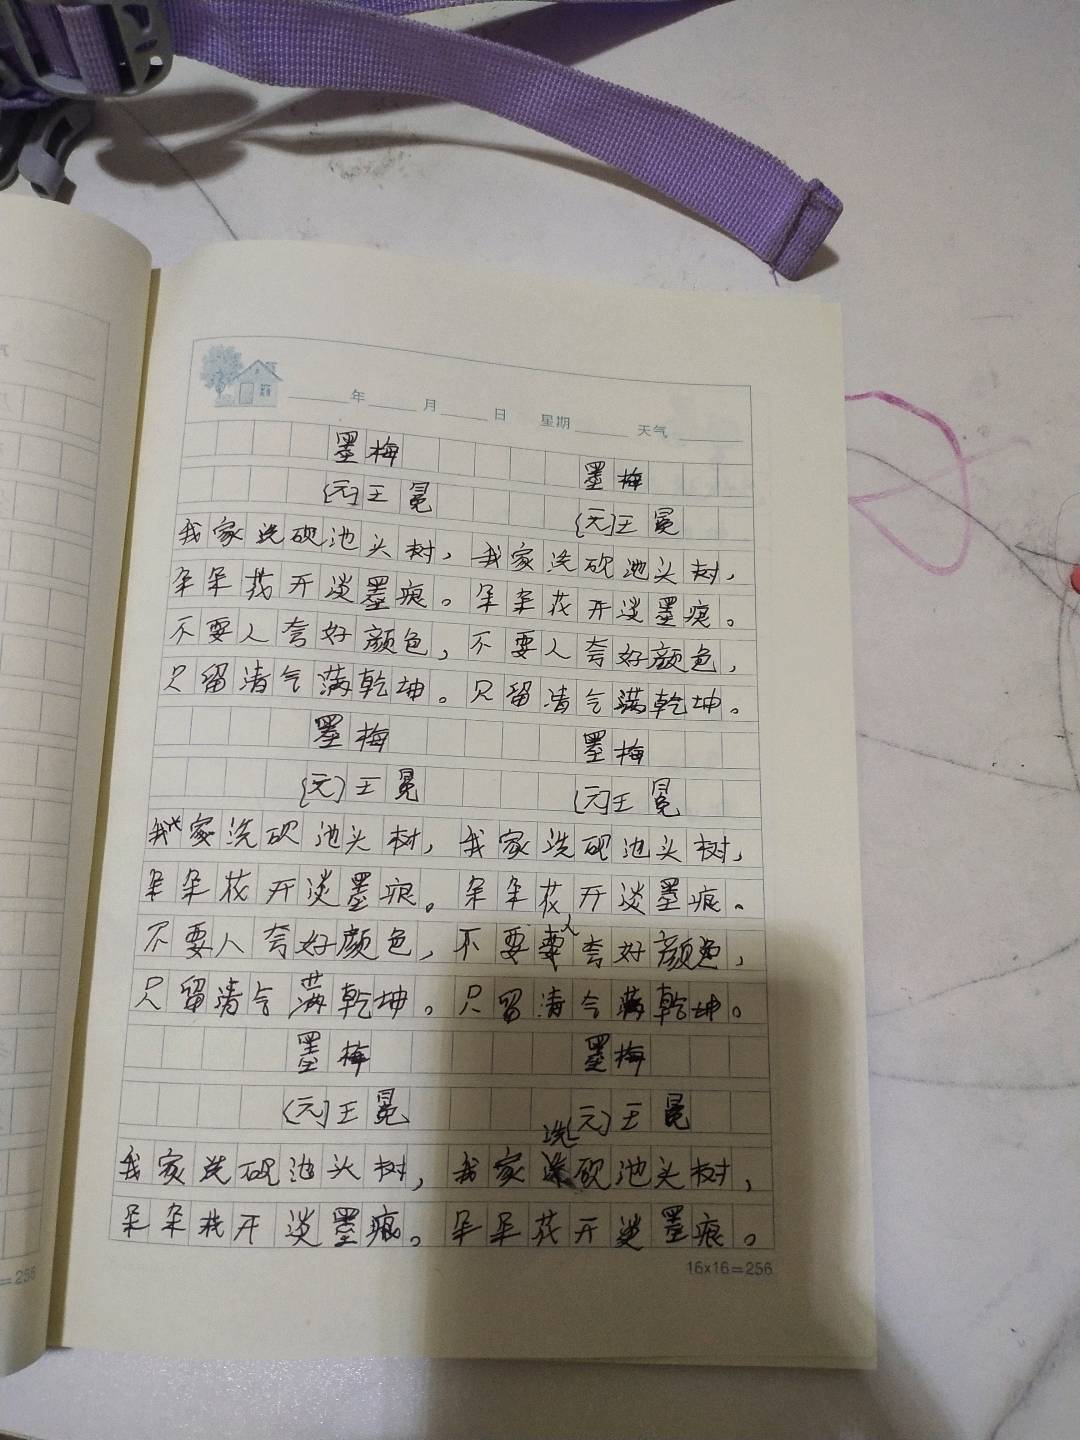 年 月 日 星期 天气
墨梅 墨梅
(元)王冕 (元)王冕
我家洗砚池头树，我家洗砚池头树，
朵朵花开淡墨痕。朵朵花开淡墨痕。
不要人夸好颜色，不要人夸好颜色，
只留清气满乾坤。只留清气满乾坤。
墨梅 墨梅
(元)王冕 (元)王冕
我家洗砚池头树，我家洗砚池头树，
朵朵花开淡墨痕。朵朵花开淡墨痕。
不要人夸好颜色，不要人夸好颜色，
只留清气满乾坤。只留清气满乾坤。
墨梅 墨梅
(元)王冕 (元)王冕
我家洗砚池头树，我家洗砚池头树，
朵朵花开淡墨痕。朵朵花开淡墨痕。
16×16=256
=256